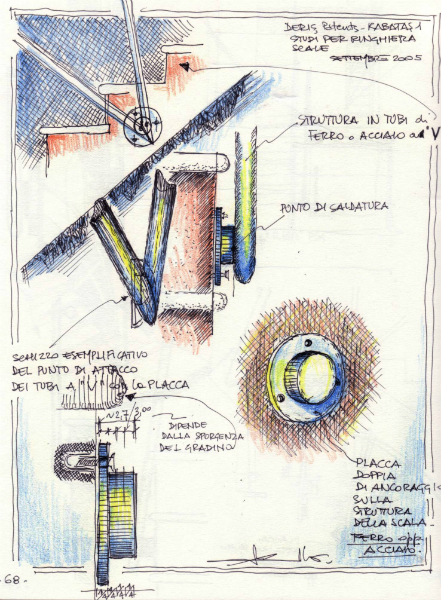 STUDI PER RINGHIERA
SCALE
SETTEMBRE 2005
STRUTTURA IN TUBI di
FERRO o ACCIAIO a "V"
PUNTO DI SALDATURA
SCHIZZO ESEMPLIFICATIVO
DEL PUNTO DI ATTACCO
DEI TUBI A "V" con la PLACCA
~2,7/3,00
DIPENDE
DALLA SPORGENZA
DEL GRADINO
PLACCA
DOPPIA
DI ANCORAGGIO
SULLA
STRUTTURA
DELLA SCALA.
FERRO opp.
ACCIAIO.
-68-